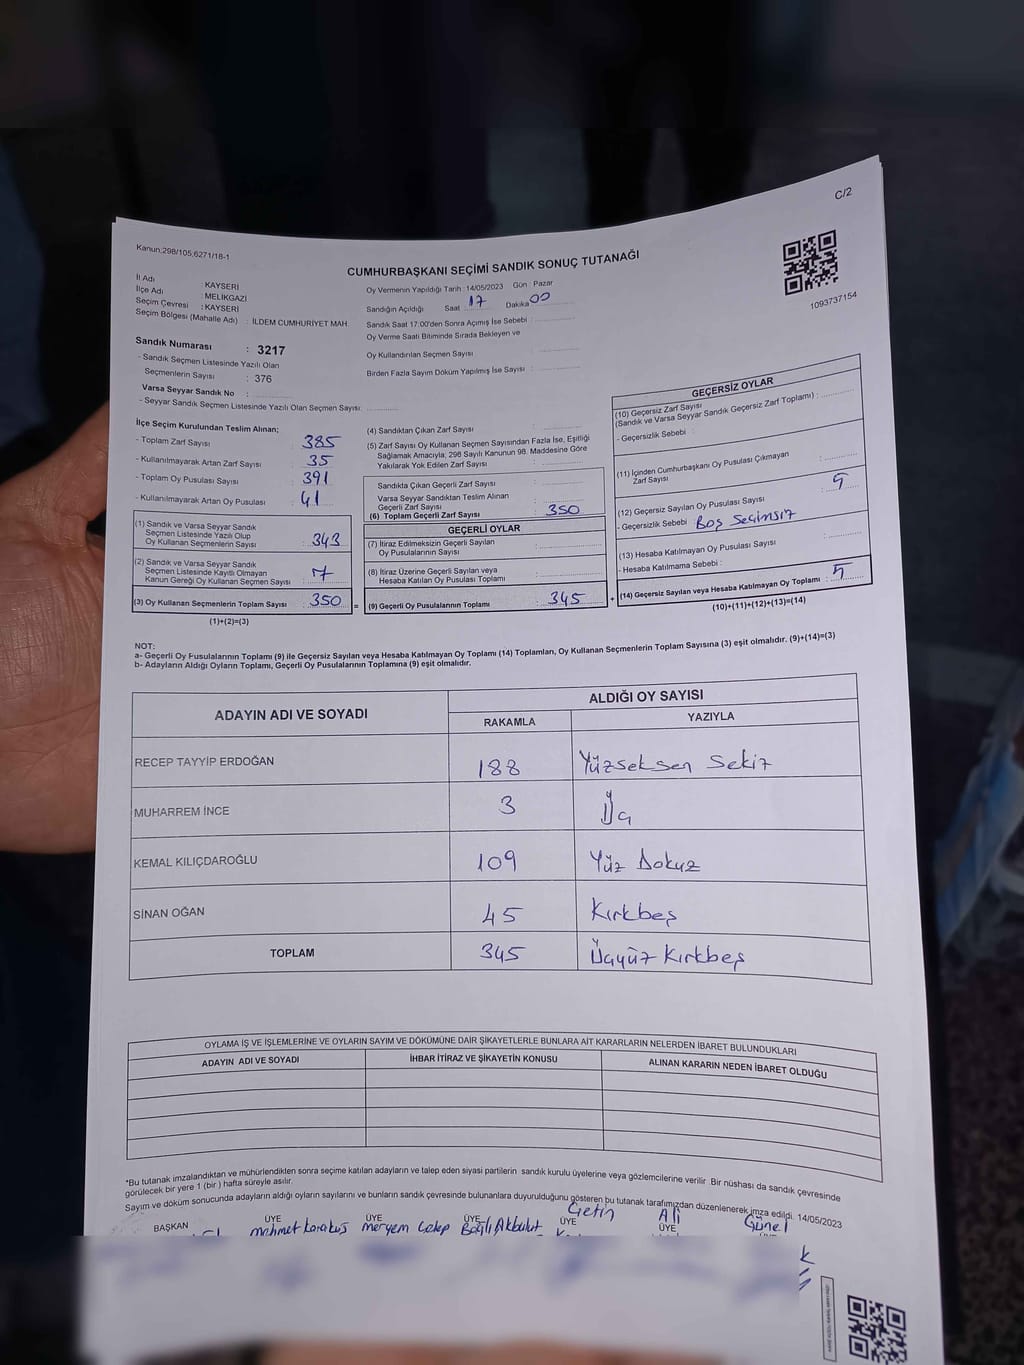 C/2
Kanun:298/105;6271/18-1
CUMHURBAŞKANI SEÇİMİ SANDIK SONUÇ TUTANAĞI
1093737154
İl Adı : KAYSERİ
İlçe Adı : MELİKGAZİ
Seçim Çevresi : KAYSERİ
Seçim Bölgesi (Mahalle Adı) : İLDEM CUMHURİYET MAH
Sandık Numarası : 3217
- Sandık Seçmen Listesinde Yazılı Olan
Seçmenlerin Sayısı : 376
Varsa Seyyar Sandık No :
- Seyyar Sandık Seçmen Listesinde Yazılı Olan Seçmen Sayısı:
Oy Vermenin Yapıldığı Tarih : 14/05/2023 Gün : Pazar
Sandığın Açıldığı Saat 17 Dakika 00
Sandık Saat 17:00'den Sonra Açımış İse Sebebi :
Oy Verme Saati Bitiminde Sırada Bekleyen ve
Oy Kullandırılan Seçmen Sayısı :
Birden Fazla Sayım Döküm Yapılmış İse Sayısı :
İlçe Seçim Kurulundan Teslim Alınan;
- Toplam Zarf Sayısı : 385
- Kullanılmayarak Artan Zarf Sayısı : 35
- Toplam Oy Pusulası Sayısı : 391
- Kullanılmayarak Artan Oy Pusulası : 41
(1) Sandık ve Varsa Seyyar Sandık
Seçmen Listesinde Yazılı Olup
Oy Kullanan Seçmenlerin Sayısı : 343
(2) Sandık ve Varsa Seyyar Sandık
Seçmen Listesinde Kayıtlı Olmayan
Kanun Gereği Oy Kullanan Seçmen Sayısı : 7
(3) Oy Kullanan Seçmenlerin Toplam Sayısı : 350 =
(1)+(2)=(3)
(4) Sandıktan Çıkan Zarf Sayısı :
(5) Zarf Sayısı Oy Kullanan Seçmen Sayısından Fazla İse, Eşitliği
Sağlamak Amacıyla; 298 Sayılı Kanunun 98. Maddesine Göre
Yakılarak Yok Edilen Zarf Sayısı :
Sandıkta Çıkan Geçerli Zarf Sayısı :
Varsa Seyyar Sandıktan Teslim Alınan
Geçerli Zarf Sayısı :
(6) Toplam Geçerli Zarf Sayısı : 350
GEÇERLİ OYLAR
(7) İtiraz Edilmeksizin Geçerli Sayılan
Oy Pusulalarının Sayısı :
(8) İtiraz Üzerine Geçerli Sayılan veya
Hesaba Katılan Oy Pusulası Toplamı :
(9) Geçerli Oy Pusulalarının Toplamı : 345 +
GEÇERSİZ OYLAR
(10) Geçersiz Zarf Sayısı
(Sandık ve Varsa Seyyar Sandık Geçersiz Zarf Toplamı) :
- Geçersizlik Sebebi :
(11) İçinden Cumhurbaşkanı Oy Pusulası Çıkmayan
Zarf Sayısı :
(12) Geçersiz Sayılan Oy Pusulası Sayısı : 5
- Geçersizlik Sebebi Boş Seçimsiz
(13) Hesaba Katılmayan Oy Pusulası Sayısı :
- Hesaba Katılmama Sebebi :
(14) Geçersiz Sayılan veya Hesaba Katılmayan Oy Toplamı : 5
(10)+(11)+(12)+(13)=(14)
NOT:
a- Geçerli Oy Pusulalarının Toplamı (9) ile Geçersiz Sayılan veya Hesaba Katılmayan Oy Toplamı (14) Toplamları, Oy Kullanan Seçmenlerin Toplam Sayısına (3) eşit olmalıdır. (9)+(14)=(3)
b- Adayların Aldığı Oyların Toplamı, Geçerli Oy Pusulalarının Toplamına (9) eşit olmalıdır.
ADAYIN ADI VE SOYADI ALDIĞI OY SAYISI
RAKAMLA YAZIYLA
RECEP TAYYİP ERDOĞAN 188 Yüzseksen Sekiz
MUHARREM İNCE 3 Üç
KEMAL KILIÇDAROĞLU 109 Yüz Dokuz
SİNAN OĞAN 45 Kırkbeş
TOPLAM 345 Üçyüz Kırkbeş
OYLAMA İŞ VE İŞLEMLERİNE VE OYLARIN SAYIM VE DÖKÜMÜNE DAİR ŞİKAYETLERLE BUNLARA AİT KARARLARIN NELERDEN İBARET BULUNDUKLARI
ADAYIN ADI VE SOYADI İHBAR İTİRAZ VE ŞİKAYETİN KONUSU ALINAN KARARIN NEDEN İBARET OLDUĞU
*Bu tutanak imzalandıktan ve mühürlendikten sonra seçime katılan adayların ve talep eden siyasi partilerin sandık kurulu üyelerine veya gözlemcilerine verilir .Bir nüshası da sandık çevresinde
görülecek bir yere 1 (bir ) hafta süreyle asılır.
Sayım ve döküm sonucunda adayların aldığı oyların sayılarını ve bunların sandık çevresinde bulunanlara duyurulduğunu gösteren bu tutanak tarafımızdan düzenlenerek imza edildi. 14/05/2023
BAŞKAN ÜYE ÜYE ÜYE ÜYE ÜYE ÜYE
mahmet karakuş meryem Akbulut Çetin Ali Günel